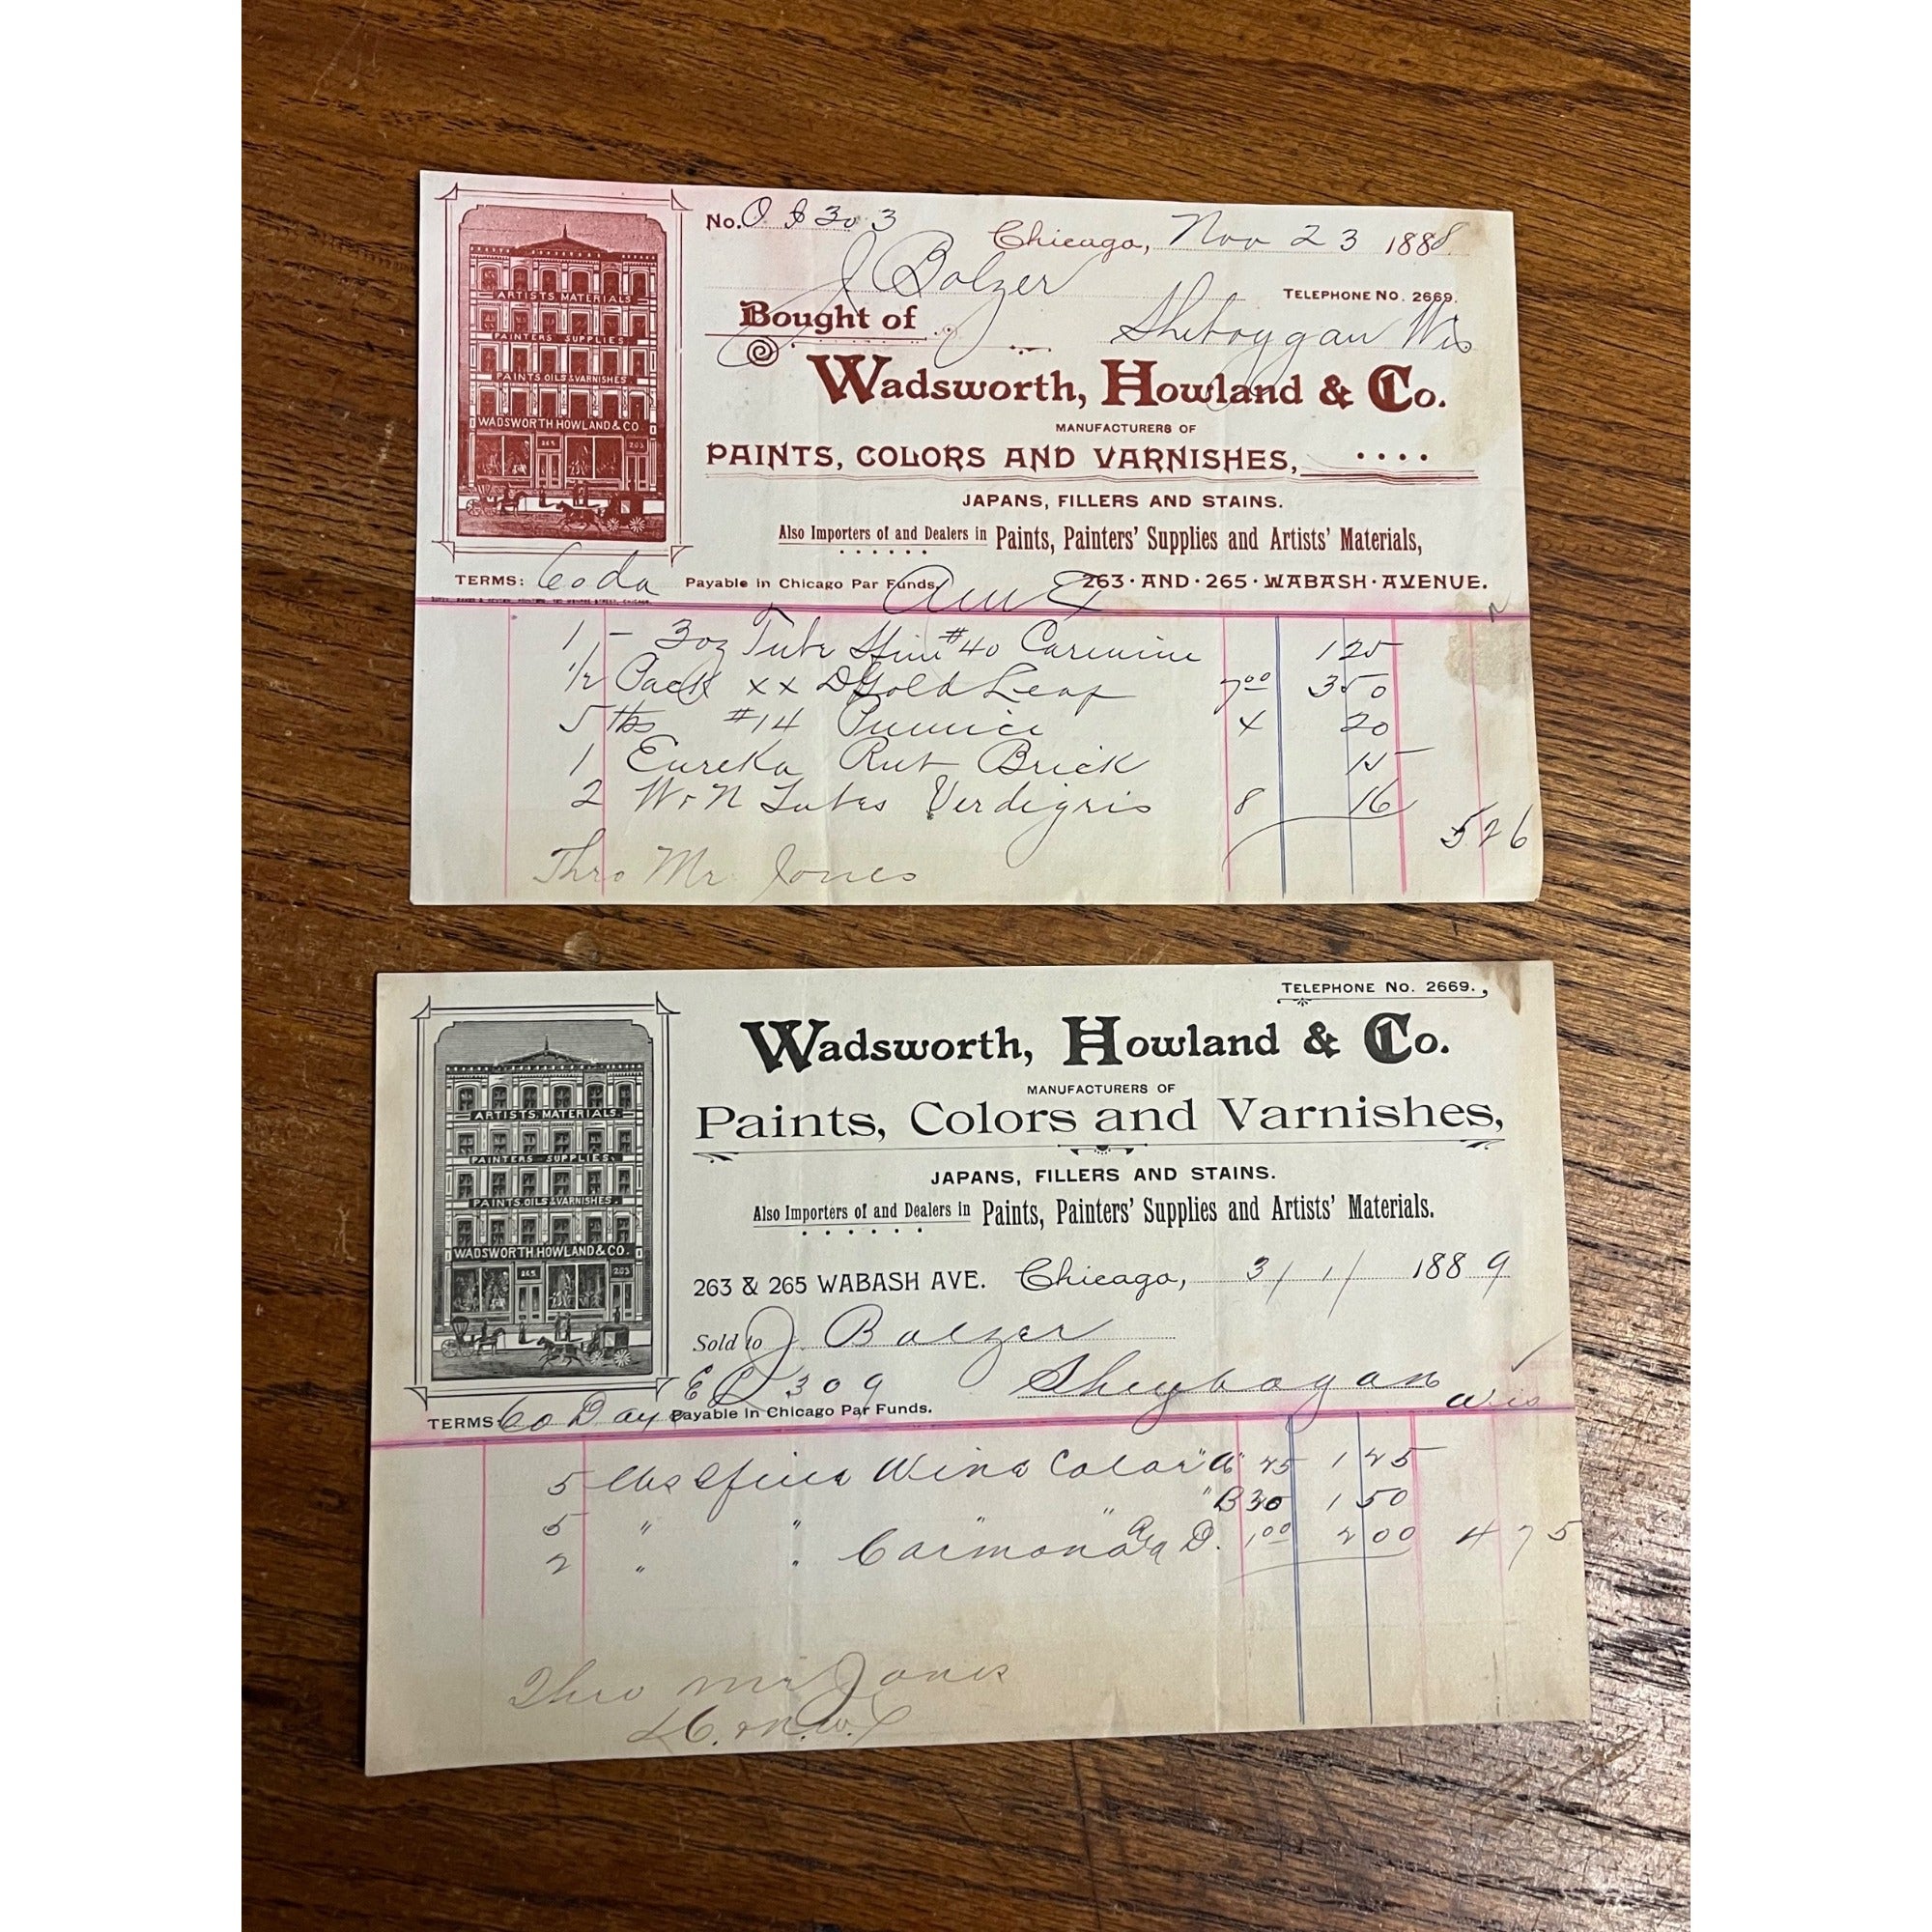 No. O & 303
Chicago, Nov 23 1888
J Balzer
TELEPHONE NO. 2669.
Bought of
Sheboygan Wis
Wadsworth, Howland & Co.
MANUFACTURERS OF
PAINTS, COLORS AND VARNISHES,
JAPANS, FILLERS AND STAINS.
Also Importers of and Dealers in Paints, Painters' Supplies and Artists' Materials,
TERMS: 60 da Payable in Chicago Par Funds. 263 · AND · 265 · WABASH · AVENUE.
ARTISTS MATERIALS
PAINTERS SUPPLIES
PAINTS OILS & VARNISHES
WADSWORTH HOWLAND & CO.
265 263
1 - 3 oz Tube #40 Carmine 1 25
1/2 Pack XX D Gold Leaf 7 00 3 50
5 lbs #14 Pumice 4 20
1 Eureka Rub Brick 15
2 W & N Tubes Verdigris 8 16 5 26
Thro Mr Jones
TELEPHONE NO. 2669.
Wadsworth, Howland & Co.
MANUFACTURERS OF
Paints, Colors and Varnishes,
JAPANS, FILLERS AND STAINS.
Also Importers of and Dealers in Paints, Painters' Supplies and Artists' Materials.
263 & 265 WABASH AVE. Chicago, 3/1/ 1889
Sold to J. Balzer
309 Sheyboygan Wis
TERMS: 60 Days Payable in Chicago Par Funds.
ARTISTS MATERIALS.
PAINTERS SUPPLIES.
PAINTS OILS & VARNISHES.
WADSWORTH, HOWLAND & CO.
265 263
5 lbs Wine Color "A" 25 1 25
5 " " " "B 30 1 50
2 " " D. 1 00 2 00 4 75
Thro Mr Jones